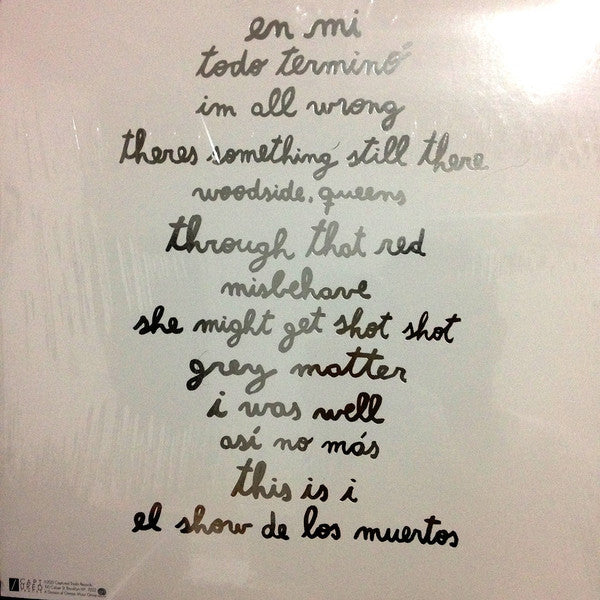 en mi
todo terminó
im all wrong
theres something still there
woodside, queens
through that red
misbehave
she might get shot shot
grey matter
i was well
así no más
this is i
el show de los muertos
CAPT
URED
Captured Tracks Records